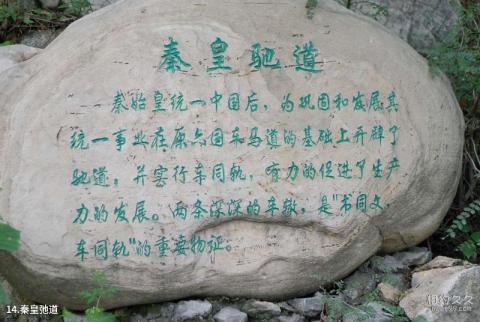 秦皇驰道
秦始皇统一中国后，为巩固和发展其
统一事业在原六国车马道的基础上开辟了
驰道，并实行车同轨，有力的促进了生产
力的发展。两条深深的车辙，是"书同文，
车同轨"的重要物征。
14.秦皇弛道